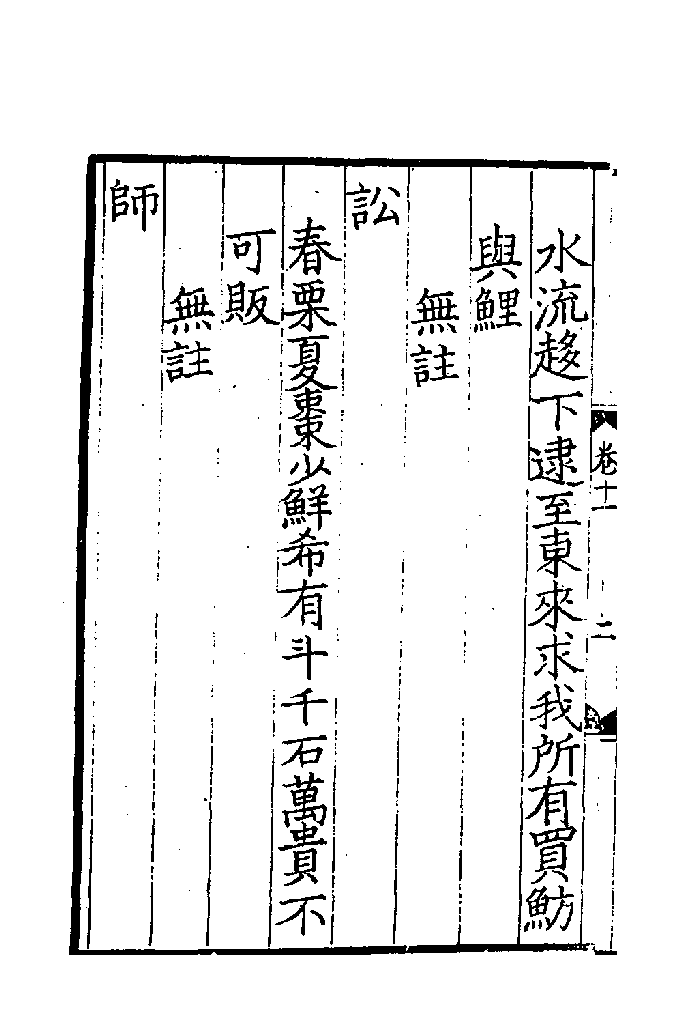 卷十一
二
水流趍下逮至東來求我所有買魴
與鯉
無註
訟
春栗夏棗少鮮希有斗千石萬貴不
可販
無註
師